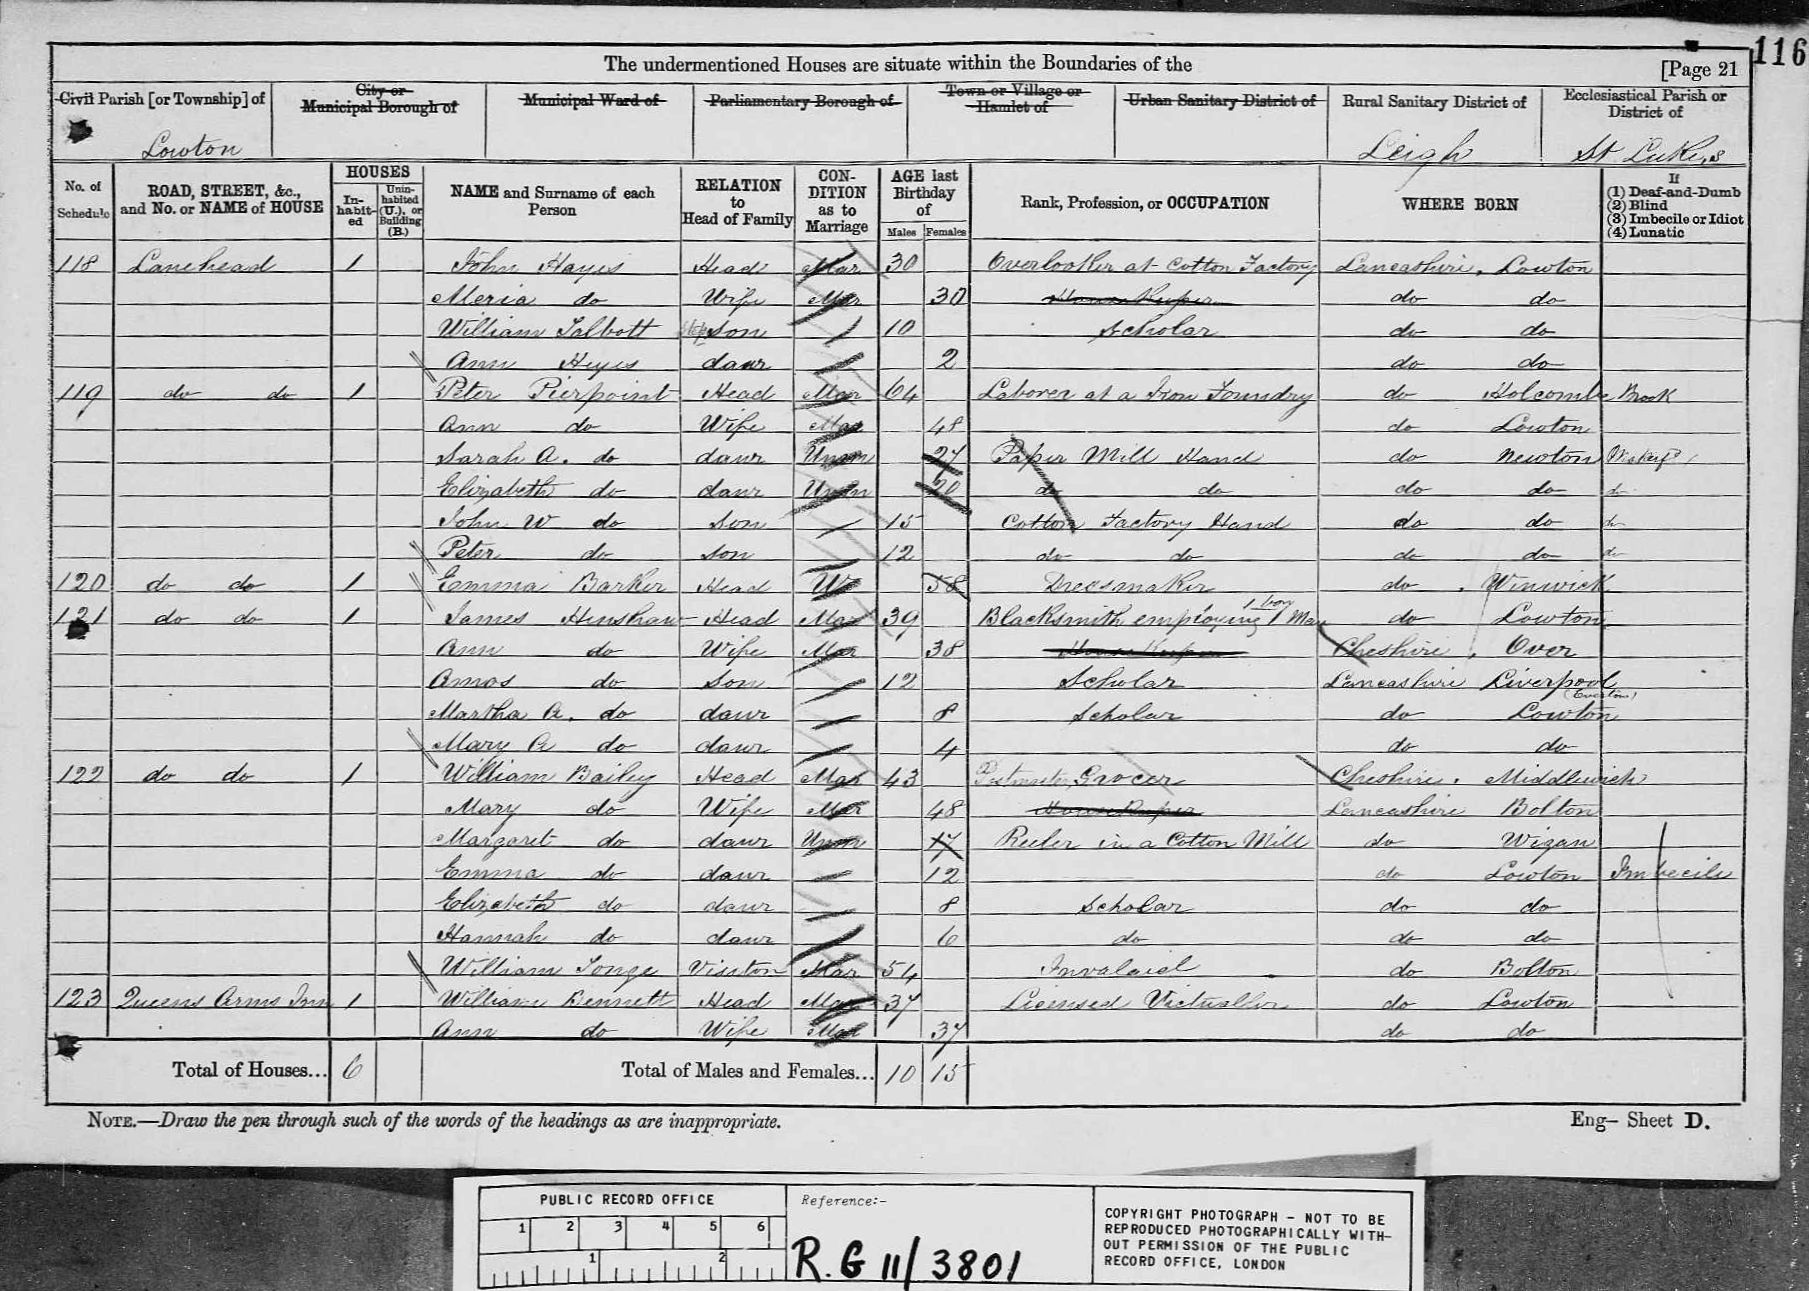 116
The undermentioned Houses are situate within the Boundaries of the
[Page 21
Civil Parish [or Township] of
City or Municipal Borough of
Municipal Ward of
Parliamentary Borough of
Town or Village or Hamlet of
Urban Sanitary District of
Rural Sanitary District of
Ecclesiastical Parish or District of
Lowton
Leigh
St Luke,s
No. of Schedule
ROAD, STREET, &c., and No. or NAME of HOUSE
HOUSES
In-habit-ed
Unin-habited (U.), or Building (B.)
NAME and Surname of each Person
RELATION to Head of Family
CON-DITION as to Marriage
AGE last Birthday of
Males
Females
Rank, Profession, or OCCUPATION
WHERE BORN
If
(1) Deaf-and-Dumb
(2) Blind
(3) Imbecile or Idiot
(4) Lunatic
118 Lanehead 1 John Hayes Head Mar 30 Overlooker at Cotton Factory Lancashire, Lowton
Meria do Wife Mar 30 House Keeper do do
William Talbott Step son 10 Scholar do do
Ann Heyes daur 2 do do
119 do do 1 Peter Pierpoint Head Mar 64 Laborer at a Iron Foundry do Holcombe Brook
Ann do Wife Mar 48 do Lowton
Sarah A. do daur Unm 27 Paper Mill Hand do Newton
Elizabeth do daur Unm 20 do do do do do
John W do Son 15 Cotton Factory Hand do do do
Peter do son 12 do do do do do
120 do do 1 Emma Barker Head 58 Dressmaker do Winwick
121 do do 1 James Henshaw Head Mar 39 Blacksmith employing 1 Man 1 boy do Lowton
Ann do Wife Mar 38 House Keeper Cheshire, Over
Amos do Son 12 Scholar Lancashire Liverpool (Everton)
Martha A. do daur 8 Scholar do Lowton
Mary A do daur 4 do do
122 do do 1 William Bailey Head Mar 43 Postmaster, Grocer Cheshire. Middlewich
Mary do Wife Mar 48 House Keeper Lancashire Bolton
Margaret do daur Unm 17 Reeler in a Cotton Mill do Wigan
Emma do daur 12 do Lowton Imbecile
Elizabeth do daur 8 Scholar do do
Hannah do daur 6 do do do
William Tonge Visiton Mar 54 Invalaid do Bolton
123 Queens Arms Inn 1 William Bennett Head Mar 37 Licensed Victualler do Lowton
Ann do Wife Mar 37 do do
Total of Houses... 6
Total of Males and Females... 10 15
NOTE.—Draw the pen through such of the words of the headings as are inappropriate.
Eng– Sheet D.
PUBLIC RECORD OFFICE
1 2 3 4 5 6
1 2
Reference:-
R.G 11/3801
COPYRIGHT PHOTOGRAPH - NOT TO BE
REPRODUCED PHOTOGRAPHICALLY WITH-
OUT PERMISSION OF THE PUBLIC
RECORD OFFICE, LONDON